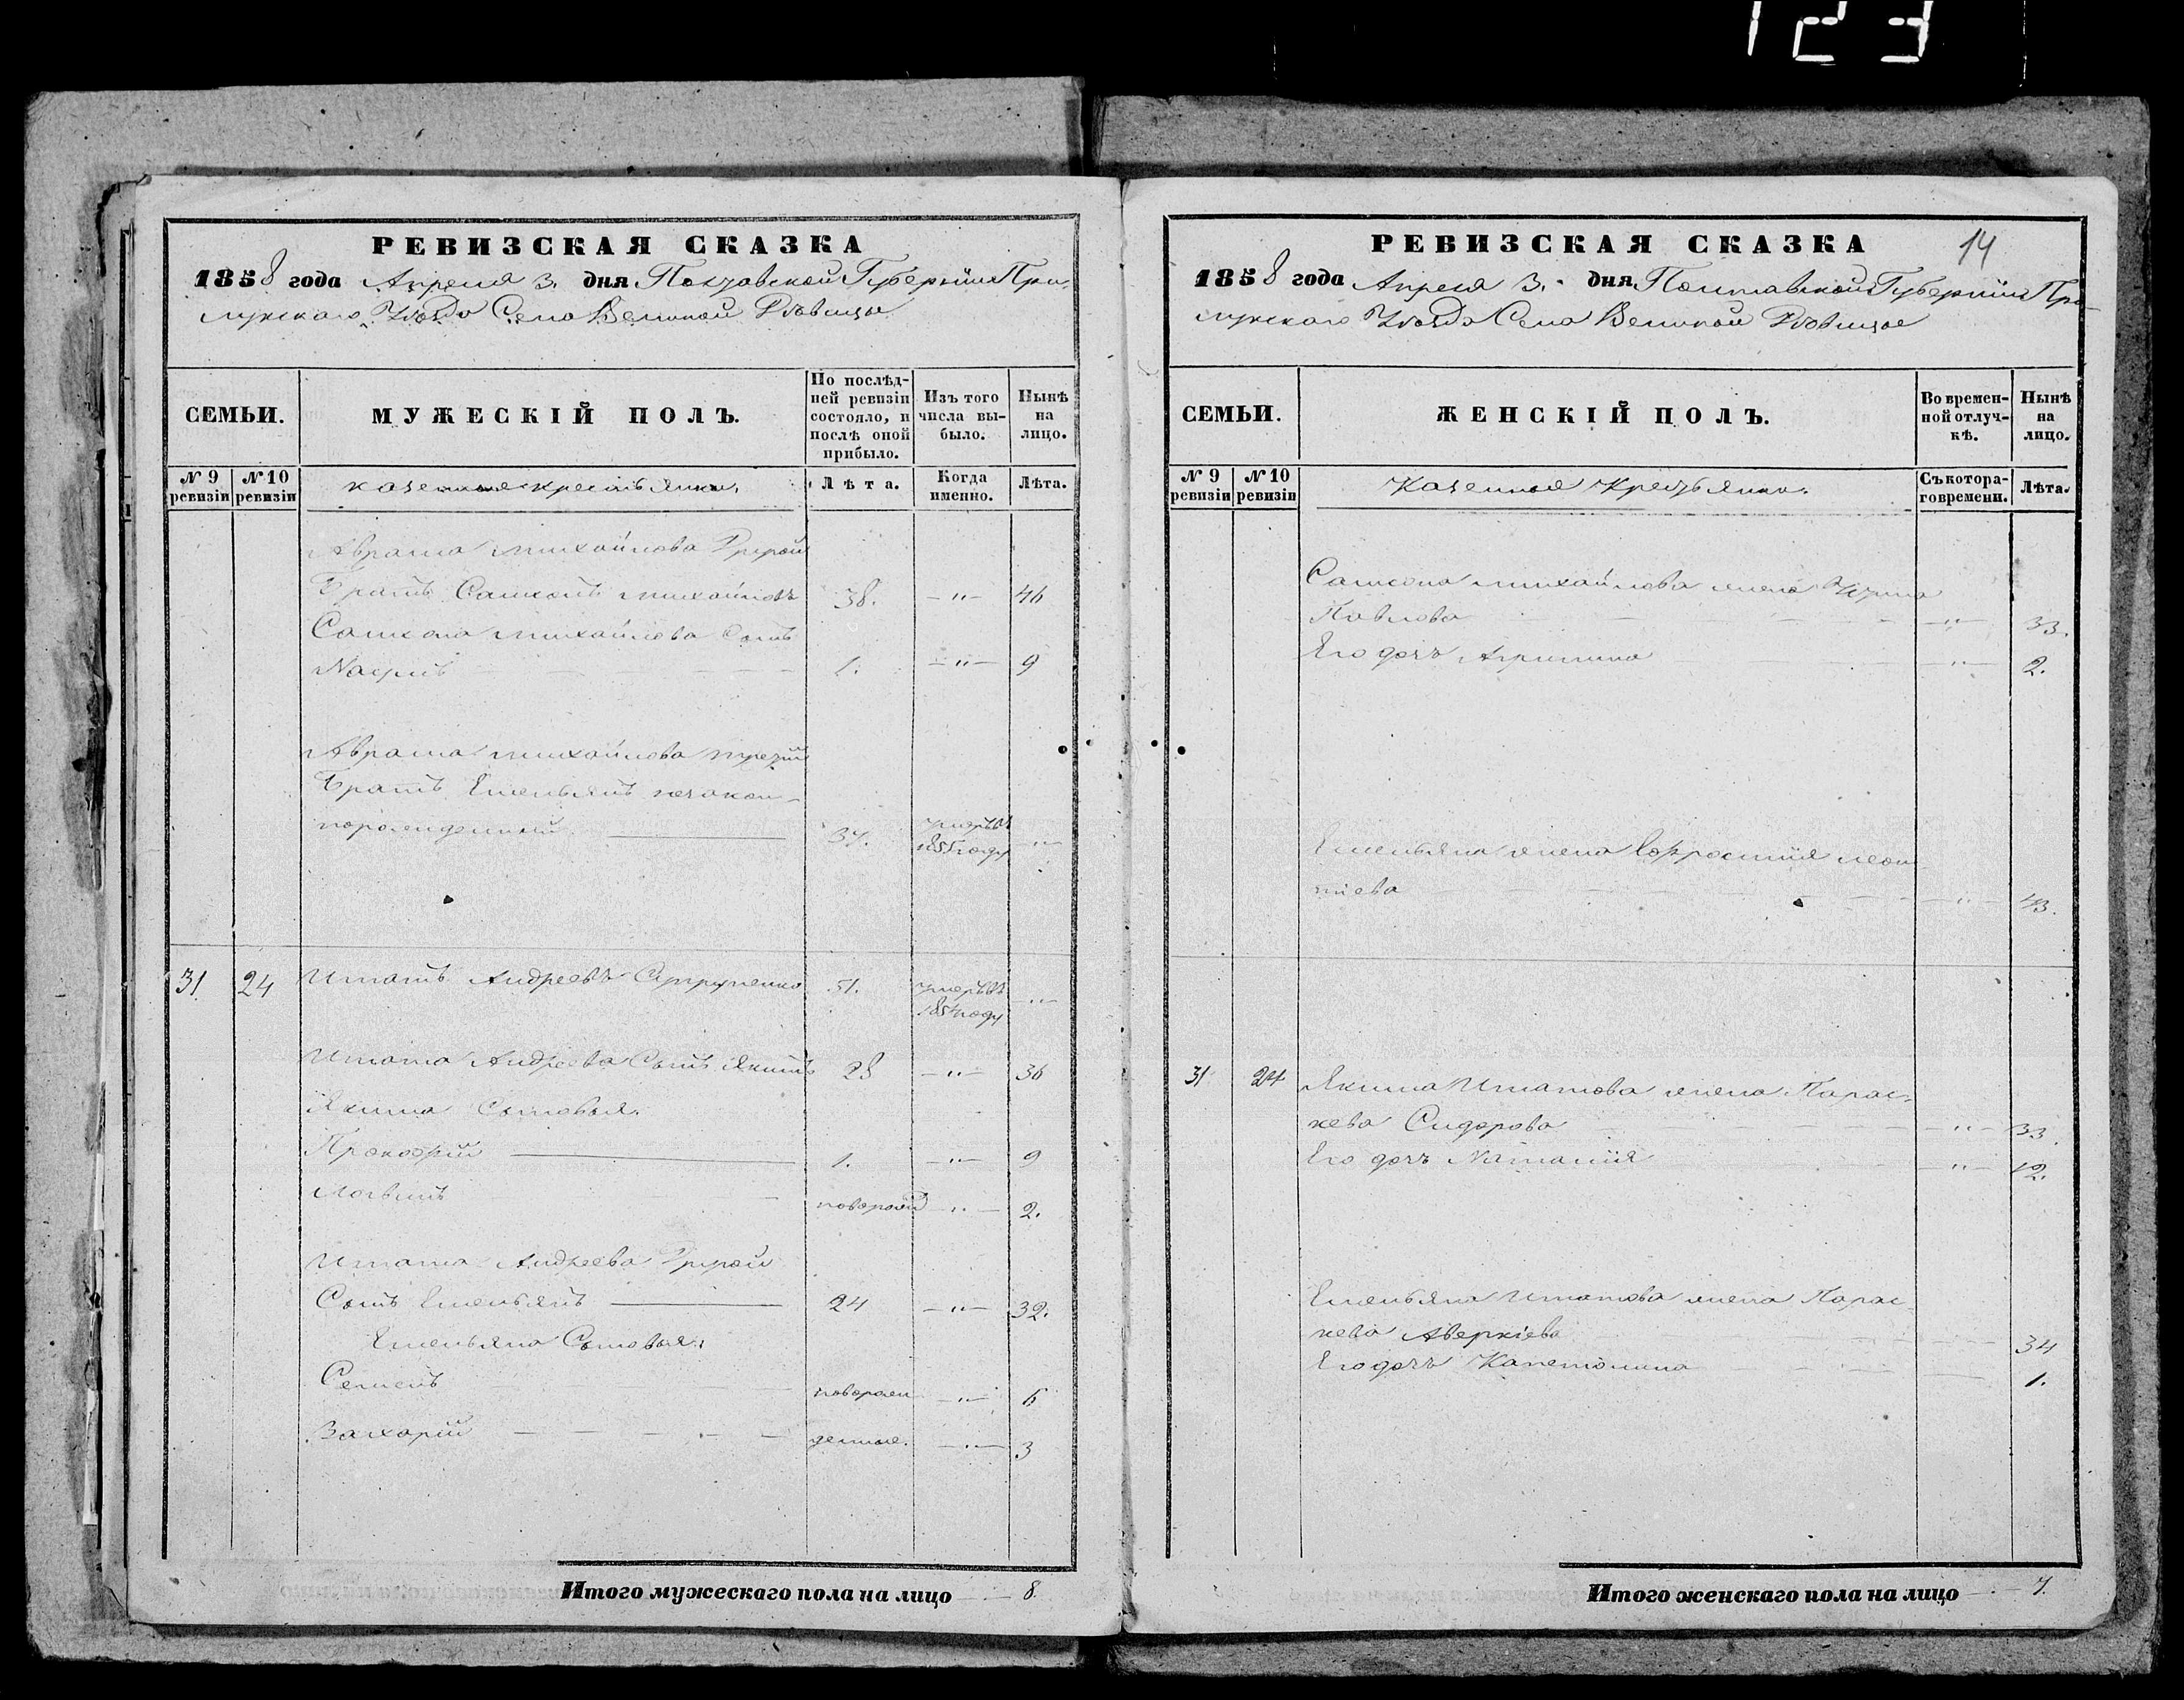 123
РЕВИЗСКАЯ СКАЗКА
1858 года Апреля 3. дня Полтавской Губерніи При-
лукского Уѣзда Села Великой Дѣвицы
СЕМЬИ.
МУЖЕСКІЙ ПОЛЪ.
По послѣд-
ней ревизіи
состояло, и
послѣ оной
прибыло.
Изъ того
числа вы-
было.
Нынѣ
на
лицо.
№ 9 ревизіи
№ 10 ревизіи
казенные крестьяне.
Лѣта.
Когда именно.
Лѣта.
Аврама Михайлова Другой
Братъ Самсонъ Михайловъ 38. — " — 46
Самсона Михайлова Сынъ
1. — " — 9
Аврама Михайлова третій
Братъ Емельянъ незакон-
норожденный 37. умеръ въ 1855 году "
31 24 Игнатъ Андреевъ 51. умеръ въ 1854 году "
Игната Андреева Сынъ Якимъ 28 — " — 36
Якима Сыновья.
Прокофій 1. — " — 9
Логвинъ новорожд — " — 2.
Игната Андреева Другой
Сынъ Емельянъ 24 — " — 32.
Емельяна Сыновья:
Семенъ новорож — " — 6
Захарій денные. — " — 3
Итого мужескаго пола на лицо 8.
РЕВИЗСКАЯ СКАЗКА 14
1858 года Апреля 3. дня Полтавской Губерніи При-
лукского Уѣзда Села Великой Дѣвицы
СЕМЬИ.
ЖЕНСКІЙ ПОЛЪ.
Во времен-
ной отлуч-
кѣ.
Нынѣ
на
лицо.
№ 9 ревизіи
№ 10 ревизіи
Казенные Крестьяне.
Съ котора-
го времени.
Лѣта.
Самсона Михайлова жена Ирина
Павлова — " — 33.
Его дочь Агрипина — " — 2.
Емельяна жена Евфросинія Леон-
тіева — " — 43.
31 24 Якима Игнатова жена Парас-
кева Сидорова — " — 33.
Его дочь Наталія — " — 12.
Емельяна Игнатова жена Парас-
кева Аверкіева 34
Его дочь Капетолина 1.
Итого женскаго пола на лицо 7.